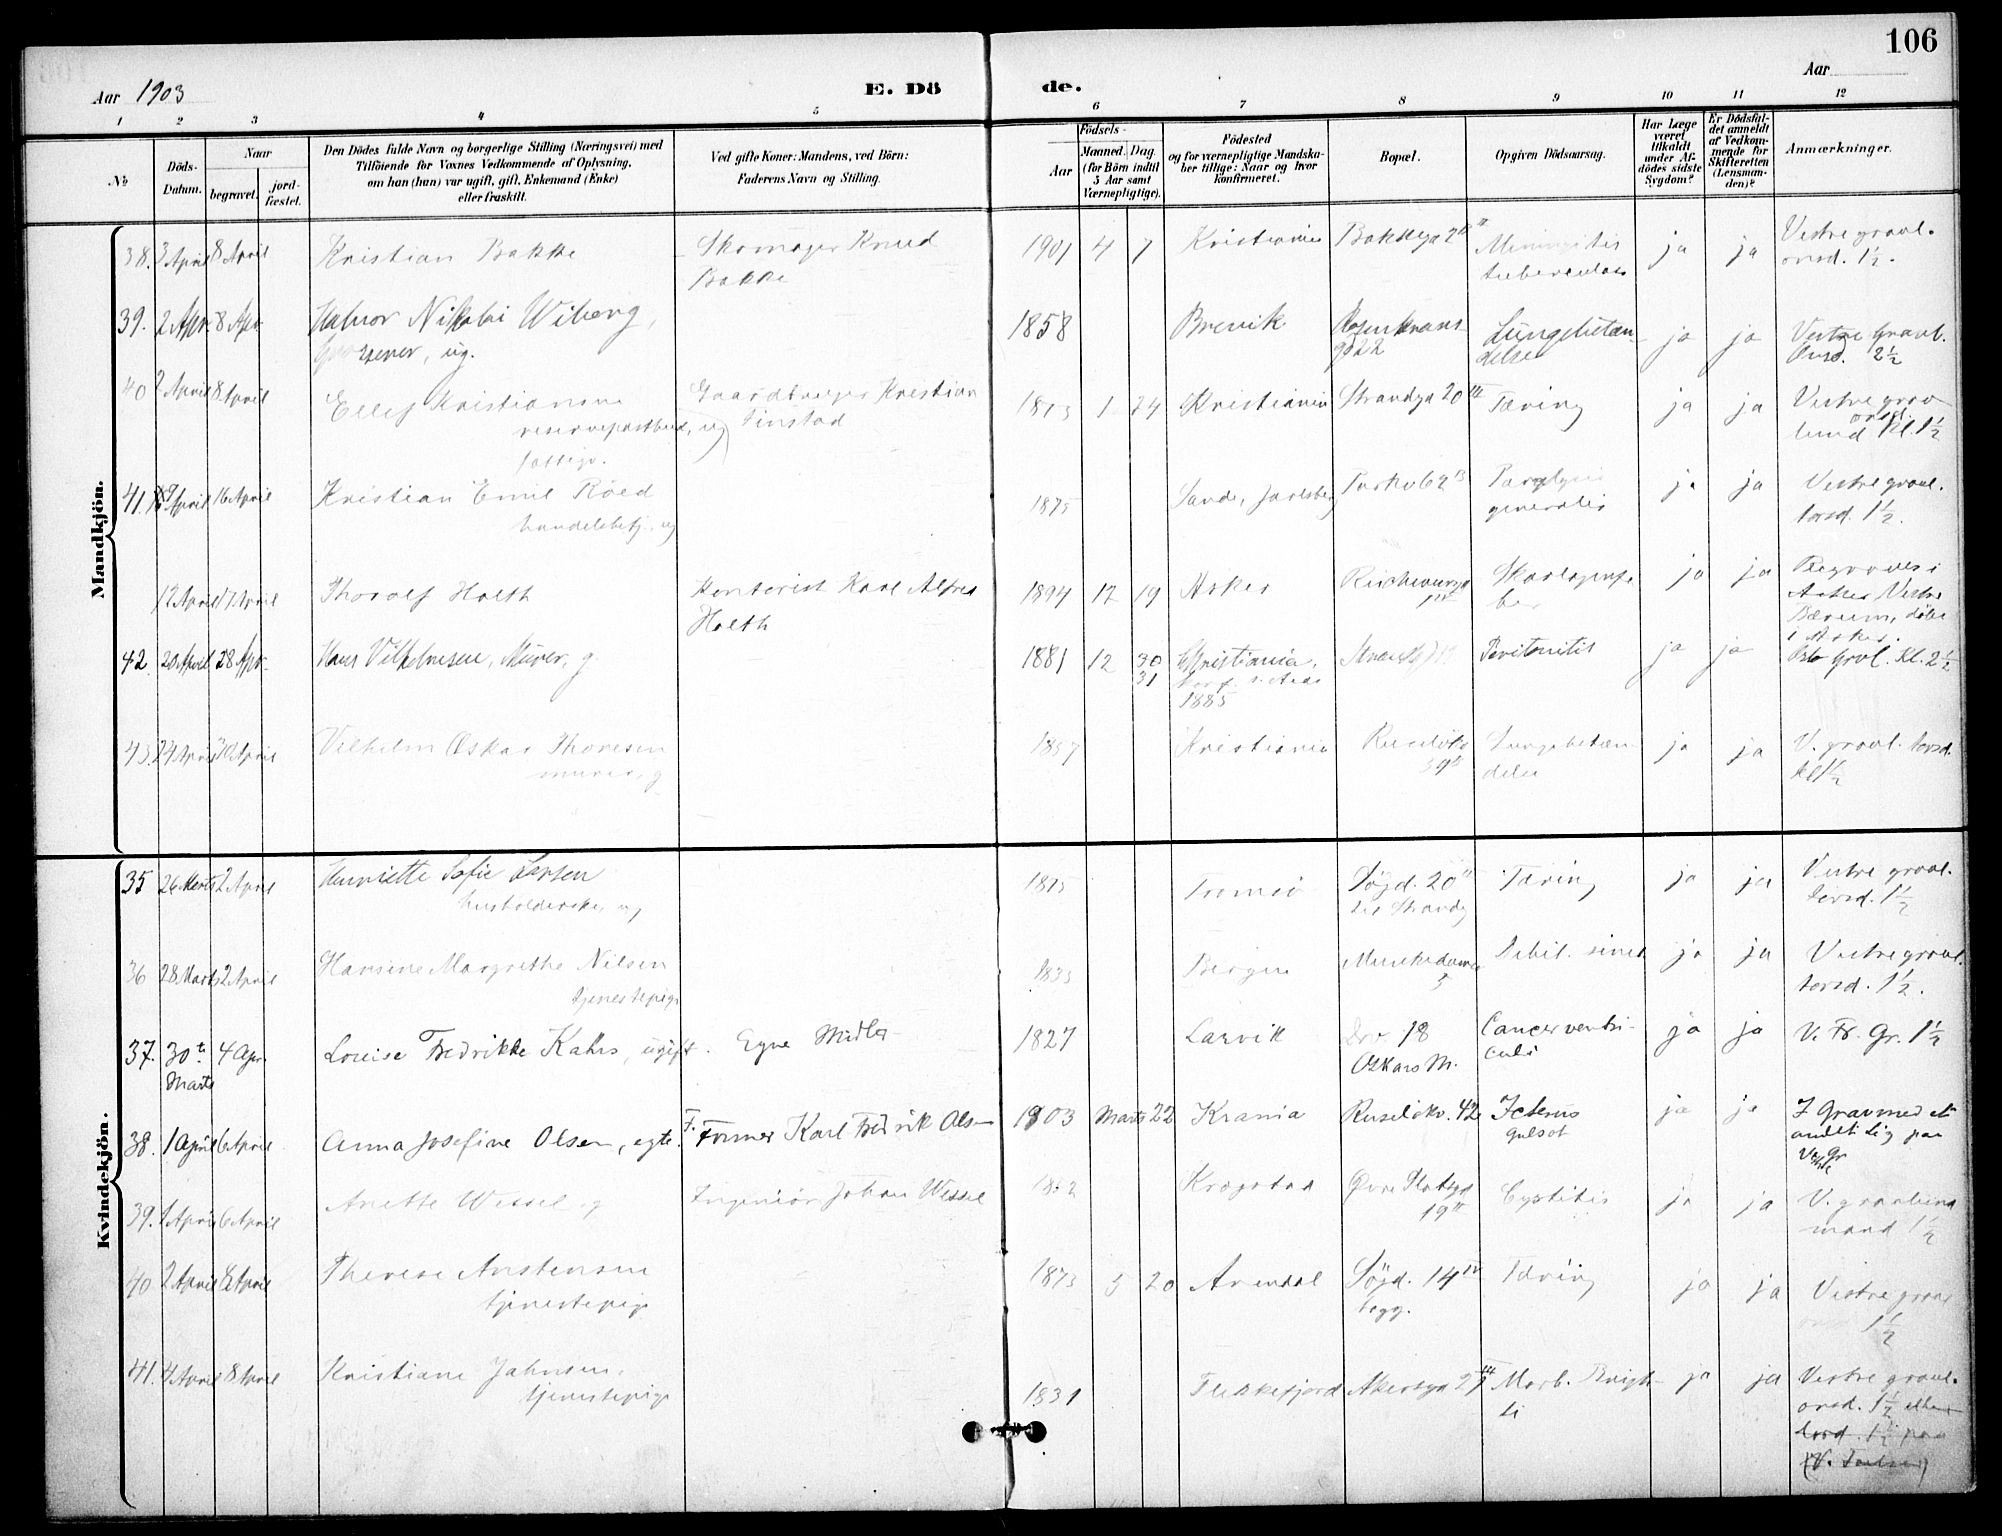 106
Aar 1903
E. Dö
de.
Aar
1 2 3 4 5 6 7 8 9 10 11 12
№
Döds-
Datum.
Naar
begravet.
jord-
fæstet.
Den Dödes fulde Navn og borgerlige Stilling (Næringsvei) med
Tilföiende for Voxnes Vedkommende af Oplysning,
om han (hun) var ugift, gift, Enkemand (Enke)
eller fraskilt.
Ved gifte Koner: Mandens, ved Börn:
Faderens Navn og Stilling.
Födsels-
Aar
Maaned.
Dag.
(for Börn indtil
5 Aar samt
Værnepligtige).
Födested
og for værnepligtige Mandska-
ber tillige: Naar og hvor
konfirmeret.
Bopæl.
Opgiven Dödsaarsag.
Har Læge
været
tilkaldt
under Af-
dödes sidste
Sygdom?
Er Dödsfal-
det anmeldt
af Vedkom-
mende for
Skifteretten
(Lensman-
den)?
Anmærkninger.
Mandkjön.
38. 3 April 8 April Kristian Bakke Skomager Knud 1901 4 7 Kristiania Meningitis ja ja Vestre gravl.
Bakke tuberculos onsd. 1½.
39. 2 Apr 8 Apr Halvor Nikolai Wiberg, 1858 Brevik Rosenkrans- Lungebetæn- ja ja Vestre Gravl.
ug. gd 22 delse Onsd. 2½
40 2 April 8 April Kristiansen Gaardbruger Kristian 1873 1 24 Kristiania Strandga 20 III Tæring ja ja Vestre grav
reservepostbud, ug Finstad onsd.
fattigv. lund Kl. 1½
41. April 16 April Kristian Emil Röed 1875 Sande, Jarlsberg Parkv 62 B Paralysis ja ja Vestre gravl.
handelsbetj. ug generalis torsd. 1½.
12 April 17 April Thorolf Holth Kontorist Karl Alfred 1894 12 19 Asker Skarlagensfe- ja ja Begraves i
Holth ber Asker Vestre
Bærum, döbt
i Asker.
42. 20 April 28 Apr Hans Vilhelmsen, Murer, g. 1881 12 30 Kristiania, Peritonitis ja ja Gravl. Kl. 2½
31
1885
43. 24 April 30 April Vilhelm Oskar Thoresen 1857 Kristiania Ruselökv Lungebetæn- ja ja V. gravl. torsd.
murer, g 39 B delse Kl 1½
Kvindekjön.
35 26 Marts 2 April Henriette Sofie Larsen 1875 Tromsö Söjd. 20 II Tæring ja ja Vestre gravl.
husholderske, ug torsd. 1½
36 28 Marts 2 April Hansine Margrethe Nilsen 1833 Bergen Munkedamsv Debil. senil ja ja Vestre gravl.
tjenestepige 5 torsd. 1½.
37. 30te 4 Apr. Louise Fredrikke Kahrs, ugift. Egne Midler 1827 Larvik Dr. 18 Cancer ventri- ja ja V. Fr. Gr. 1½
Marts Oskars M. culi
38. 1 April 6 April Anna Josefine Olsen, egte. F. Former Karl Fredrik Olsen 1903 Marts 22 Krania Ruselökv. 42 Icterus ja ja I Grav med et
gulsot andet Lig paa
Vestre Gr
39. 1 April 6 April Anette Wessel g Ingeniör Johan Wessel Kragstad Övre Slotsgd Cystitis ja ja V. gravlund
19 II mand 1½
40 2 April 8 April Therese Arntsensen 1873 5 20 Arendal Söjd. 14 IV Tæring ja ja Vestre gravl
tjenestepige begg. 1½
41. 4 April 8 April Kristiane Jahnsen 1831 Flekkefjord Akersgd Morb. Brigh- ja ja Vestre gravl.
tjenestepige ti onsd. 1½ eller
torsd. 1½ paa